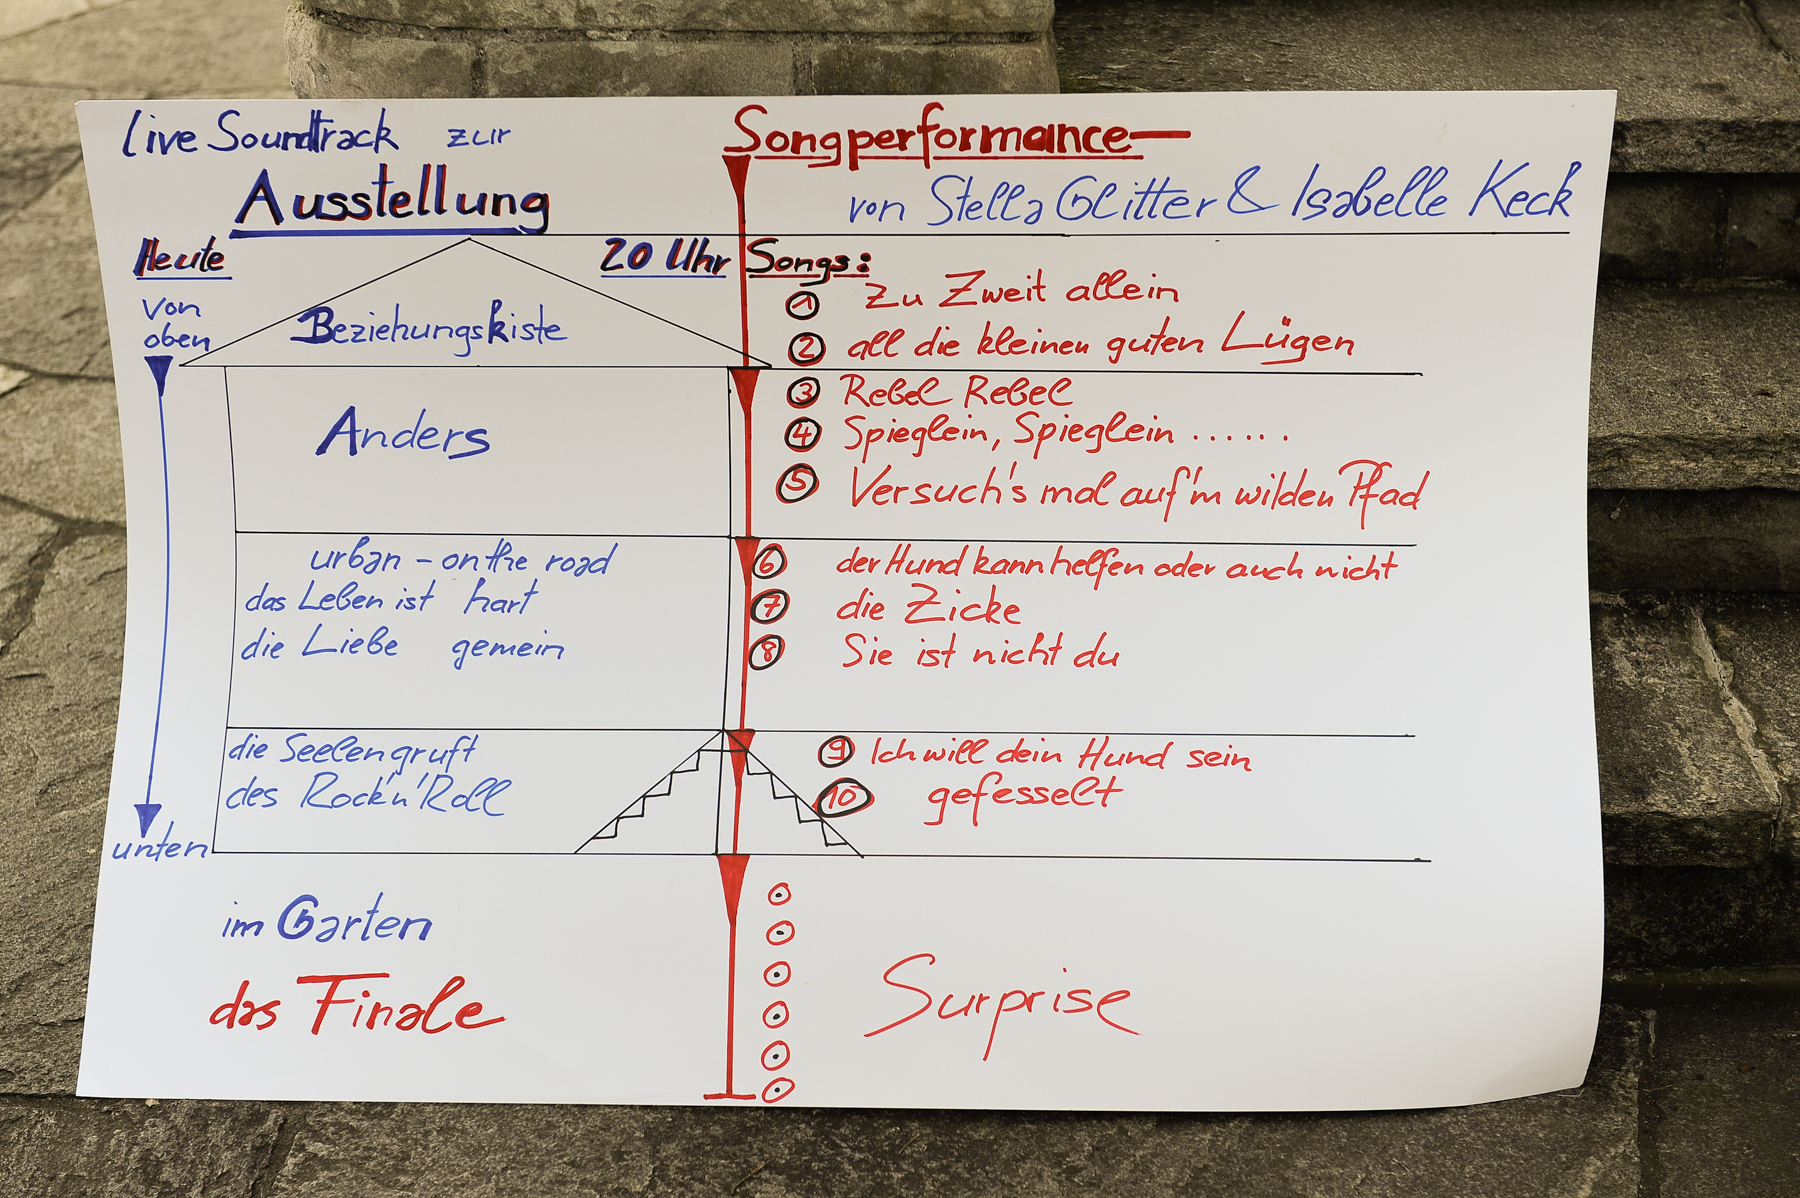 Live Soundtrack zur
Ausstellung
Songperformance
von Stella Glitter & Isabelle Keck
Heute
20 Uhr
Songs:
von
oben
Beziehungskiste
1 Zu Zweit allein
2 all die kleinen guten Lügen
Anders
3 Rebel Rebel
4 Spieglein, Spieglein ......
5 Versuch's mal auf'm wilden Pfad
urban - on the road
das Leben ist hart
die Liebe gemein
6 der Hund kann helfen oder auch nicht
7 die Zicke
8 Sie ist nicht du
die Seelengruft
des Rock'n'Roll
9 Ich will dein Hund sein
10 gefesselt
unten
im Garten
das Finale
Surprise